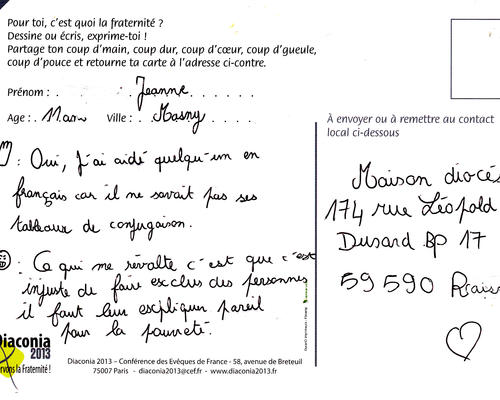 Pour toi, c'est quoi la fraternité ?
Dessine ou écris, exprime-toi !
Partage ton coup d'main, coup dur, coup d'cœur, coup d'gueule,
coup d'pouce et retourne ta carte à l'adresse ci-contre.
Prénom : Jeanne
Age : 11 ans Ville : Masny
: Oui, J'ai aidé quelqu'un en
français car il ne savait pas ses
tableaux de conjugaison.
: Ce qui me révolte c'est que c'est
injuste de faire exclus des personnes
il faut leur expliquer pareil
pour la pauvreté.
Diaconia
2013
ervons la Fraternité !
Diaconia 2013 – Conférence des Evêques de France - 58, avenue de Breteuil
75007 Paris - diaconia2013@cef.fr - www.diaconia2013.fr
À envoyer ou à remettre au contact
local ci-dessous
Maison diocés
174 rue Léopold
Dusard BP 17
59590 Rais